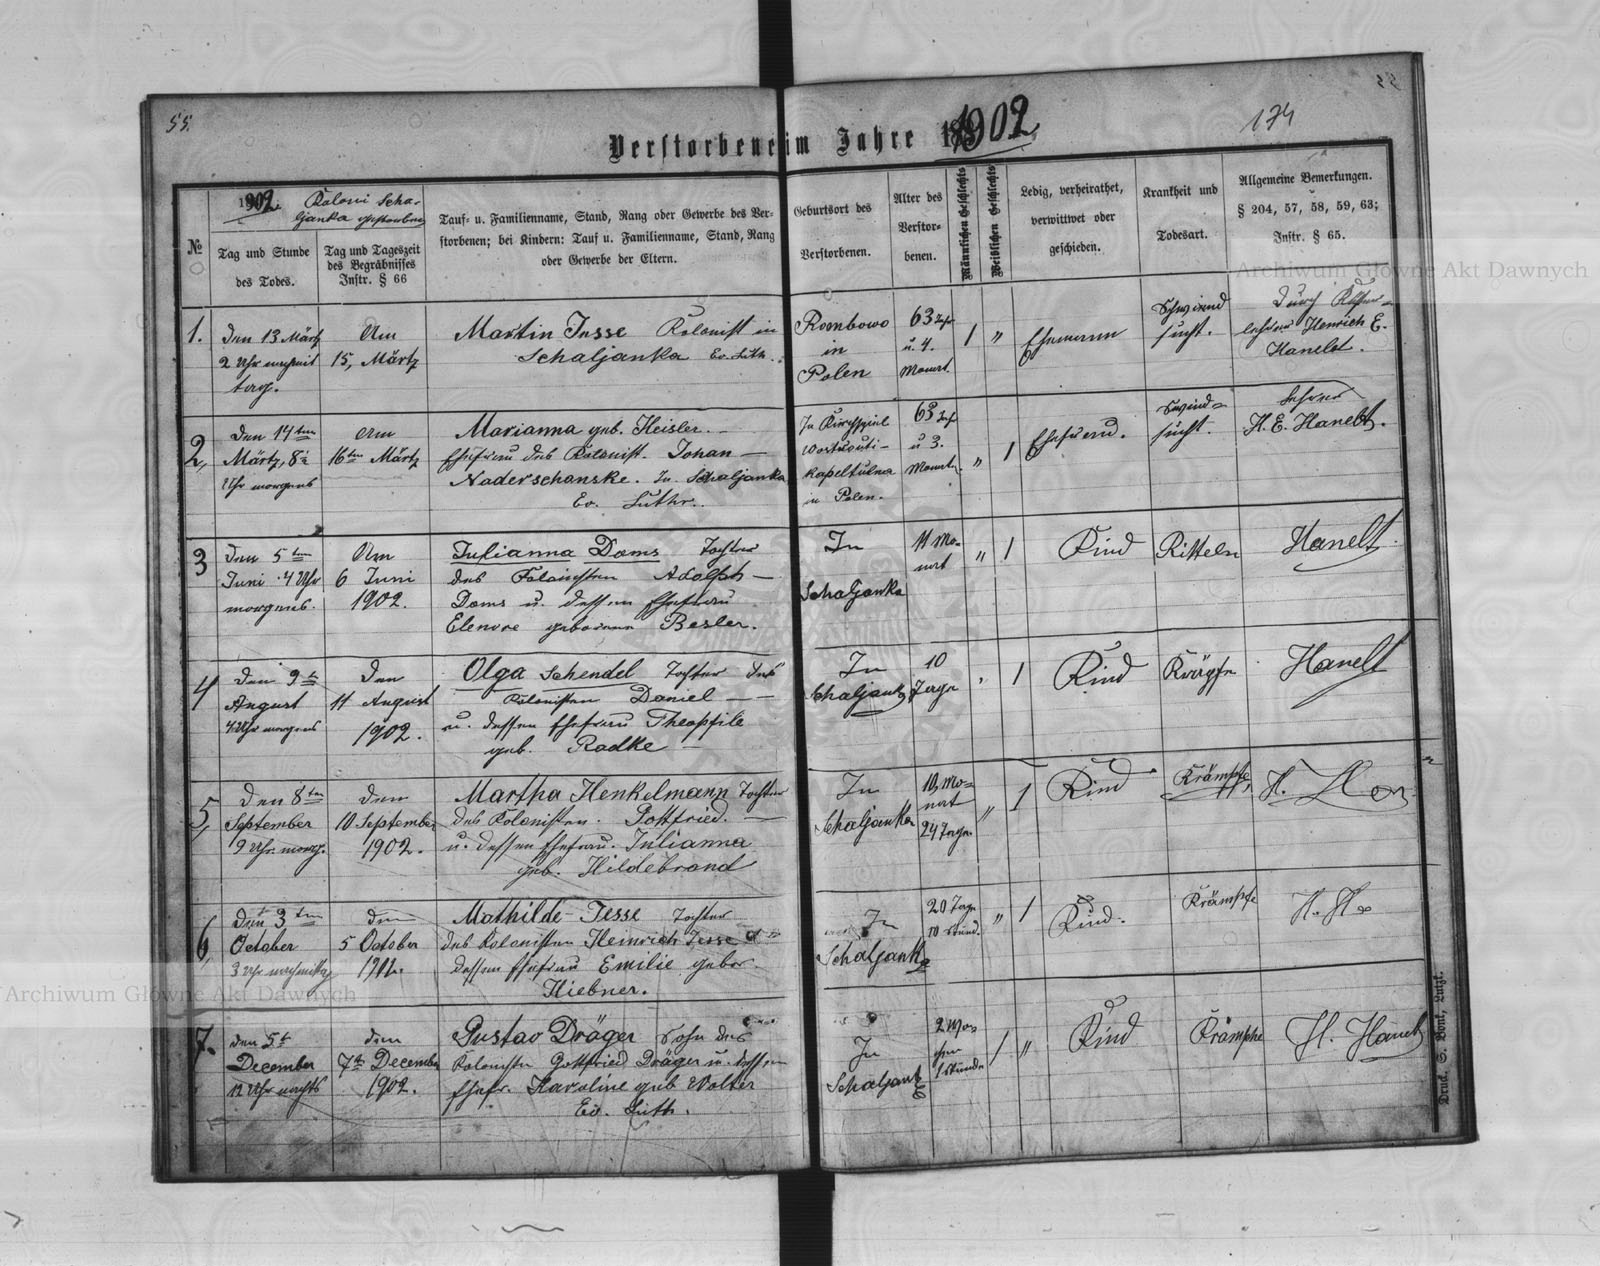 55.
55
174
Verstorbene im Jahre 1902
№
1902. Koloni Scha-
ljanka gestorben
Tag und Stunde
des Todes.
Tag und Tageszeit
des Begräbnisses
Instr. § 66
Tauf- u. Familienname, Stand, Rang oder Gewerbe des Ver-
storbenen; bei Kindern: Tauf u. Familienname, Stand, Rang
oder Gewerbe der Eltern.
Geburtsort des
Verstorbenen.
Alter des
Verstor-
benen.
Männlichen Geschlechts
Weiblichen Geschlechts
Ledig, verheirathet,
verwittwet oder
geschieden.
Krankheit und
Todesart.
Allgemeine Bemerkungen.
§ 204, 57, 58, 59, 63;
Instr. § 65.
1.
Den 13 Märtz
2 Uhr nachmit
tag.
Am
15, Märtz
Martin Jesse Kolonist in
Schaljanka Ev. Luth.
Rombowo
in
Polen
63
u. 4.
Monat
1
"
Ehemann
Schwind
sucht.
Durch Küster-
lehrer Henrich E.
Hanelt.
2,
Den 14ten
Märtz, 8
Uhr morgens
Am
16ten Märtz
Marianna geb. Heisler. —
Ehefrau des Kolonist. Johan —
Naderschanske. In Schaljanka
Ev. Luthr.
In Kirchspiel
in Polen.
63
u 3.
Monate.
"
1
Ehefrau.
Swind=
sucht.
Lehrer
H. E. Hanelt.
3
Den 5ten
Juni 4 Uhr
morgens.
Am
6 Juni
1902.
Julianna Dams Tochter
des Kolonisten Adolph —
Dams u. dessen Ehefrau
Elenore geborene Besler.
In
Schaljanka
11 Mo-
nat
"
1
Kind
Ritteln
Hanelt.
4
Den 9t
August
4 Uhr morgens
Den
11 August
1902.
Olga Schendel Tochter des
Kolonisten Daniel — —
u. dessen Ehefrau Theophile
geb. Radke —
In
Schaljanka
10
Tage
"
1
Kind
Krämpfe
Hanelt
5,
Den 8ten
September
9 Uhr. morg.
Den
10 September
1902.
Martha Henkelmann Tochter
des Kolonisten. Gottfried. —
u. dessen Ehefrau. Julianna
geb. Hildebrand
In
Schaljanka
Mo=
nat
24 Tage
"
1
Kind
Krämpfe,
H. Han
6,
Den 3ten
October
3 Uhr nachmittag
den
5 October
1902.
Mathilde Jesse Tochter
des Kolonisten Heinrich Jesse
dessen Ehefrau Emilie gebor.
Hiebner.
In
Schaljanka
20 Tage
10 Stund.
"
1
Kind.
Krämpfe
H. Ha
7.
den 5t
December
12 Uhr nachts
den
7ten December
1902.
Gustav Dräger Sohn des
Kolonisten Gottfried Dräger u. dessen
Ehefr. Karoline geb Wolter
Ev. Luth.
In
Schaljanka
2 Mo-
1 Stunde
1
"
Kind
Krämphe
H. Hanelt
Archiwum Główne Akt Dawnych
Archiwum Główne Akt Dawnych